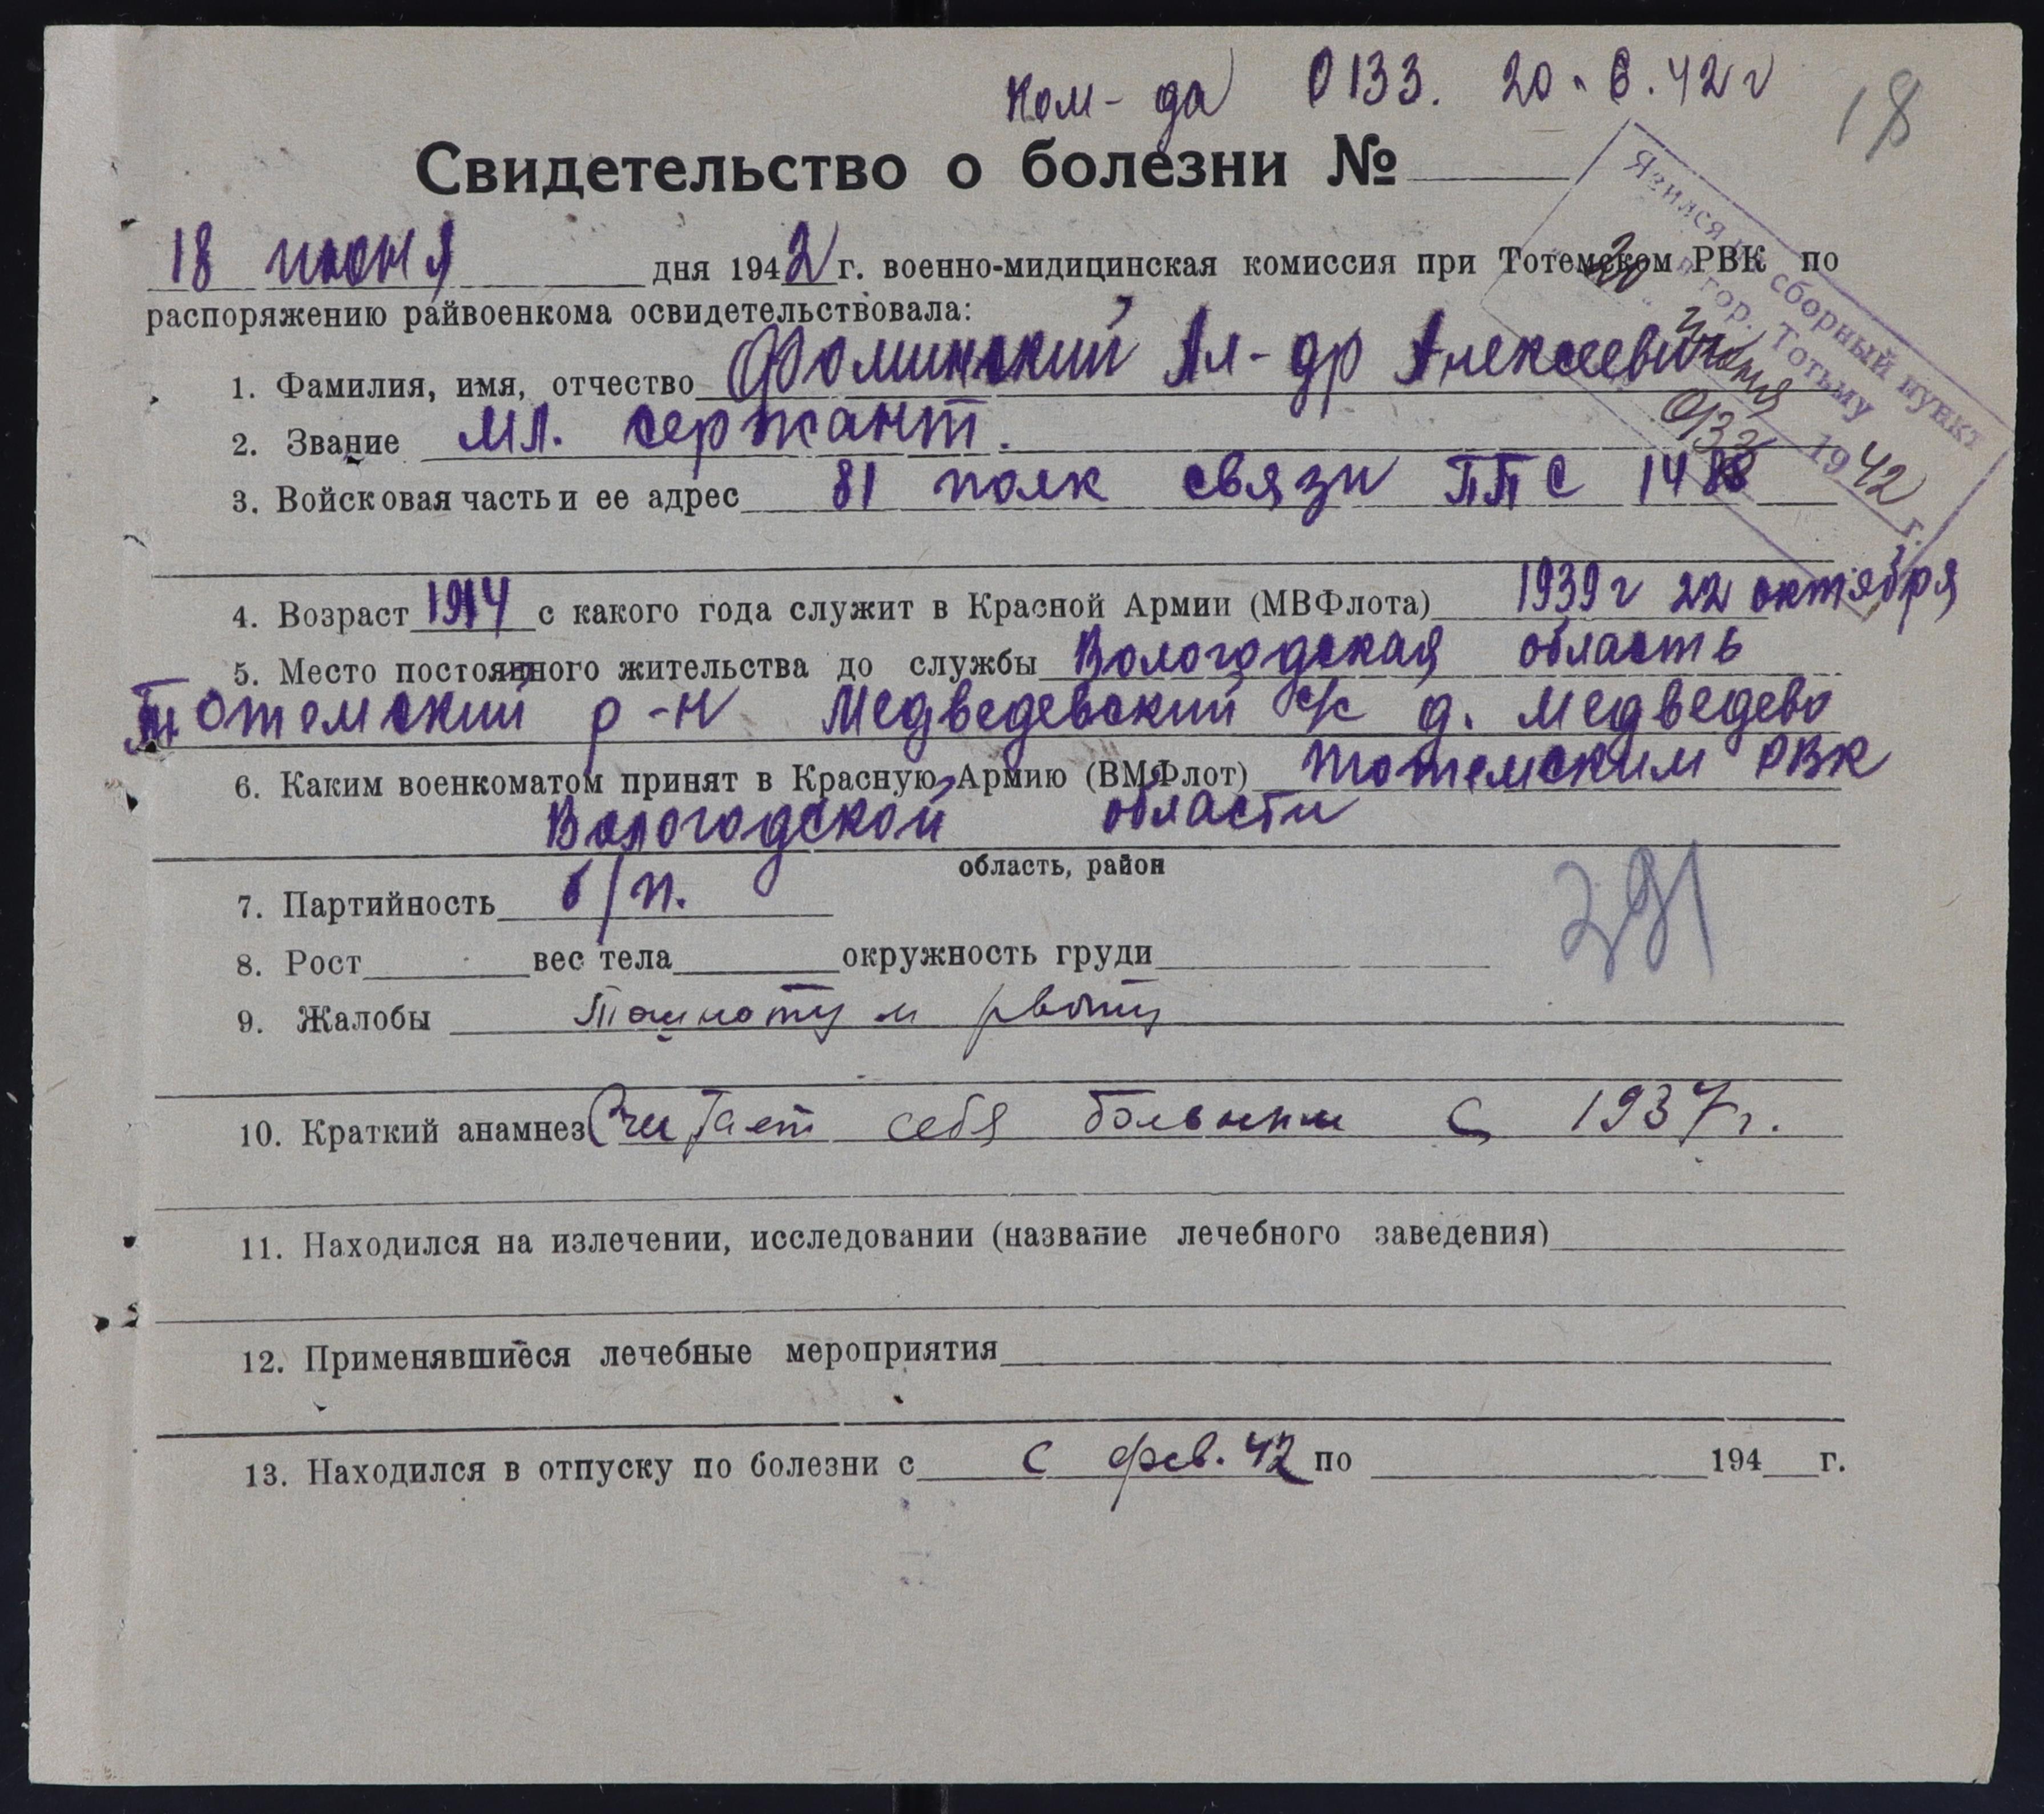 Ком-да 0133. 20.6.42 г
18
Свидетельство о болезни №
Явился на сборный пункт
в гор. Тотьму
"20" июня 1942 г.
0133
18 июня дня 1942 г. военно-мидицинская комиссия при Тотемском РВК по
распоряжению райвоенкома освидетельствовала:
1. Фамилия, имя, отчество Фоминский Ал-др Алексеевич
2. Звание мл. сержант.
3. Войсковая часть и ее адрес 81 полк связи ППС 1488
4. Возраст 1914 с какого года служит в Красной Армии (МВФлота) 1939 г 22 октября
5. Место постоянного жительства до службы Вологодская область
Тотемский р-н Медведевский с/с д. Медведево
6. Каким военкоматом принят в Красную Армию (ВМФлот) Тотемским РВК
Вологодской области
область, район
7. Партийность б/п.
291
8. Рост вес тела окружность груди
9. Жалобы Тошноту и рвоту
10. Краткий анамнез Считает себя больным с 1937 г.
11. Находился на излечении, исследовании (название лечебного заведения)
12. Применявшиеся лечебные мероприятия
13. Находился в отпуску по болезни с с фев. 42 по 194 г.